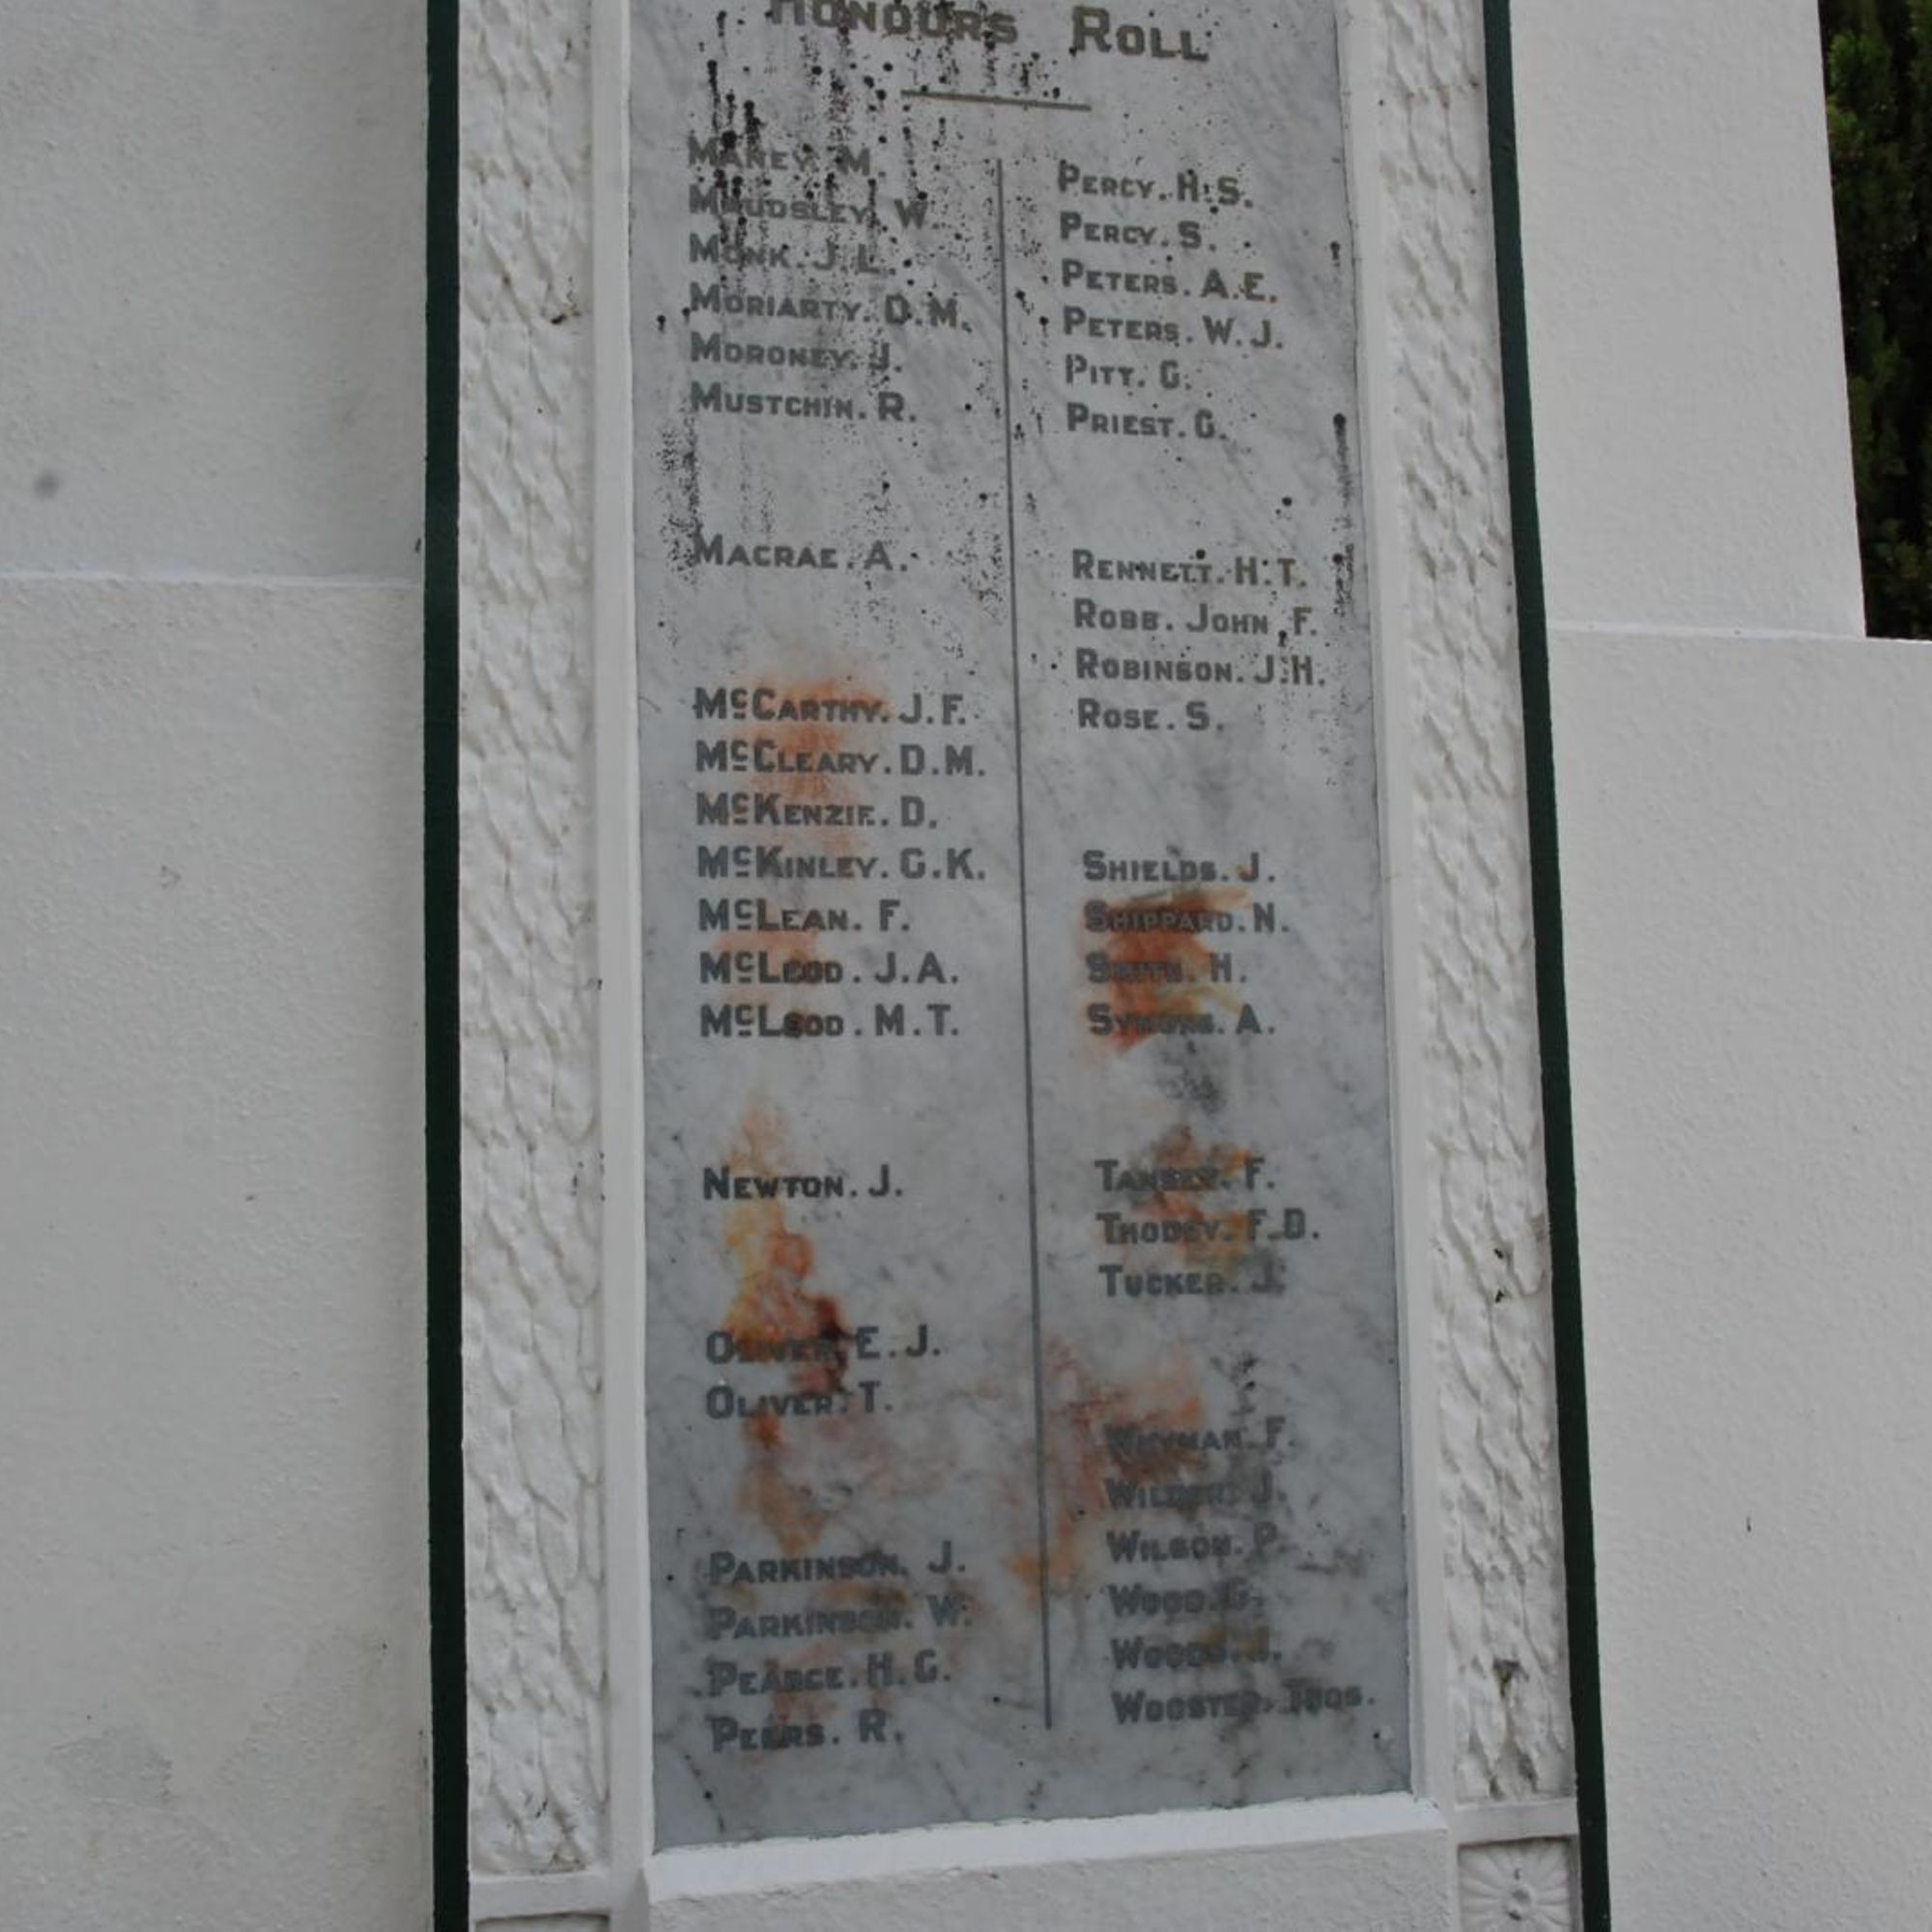 HONOURS ROLL
MANEY. M.
MAUDSLEY. W.
MONK. J. L.
MORIARTY. D. M.
MORONEY. J.
MUSTCHIN. R.
MACRAE. A.
McCARTHY. J. F.
McCLEARY. D. M.
McKENZIE. D.
McKINLEY. G. K.
McLEAN. F.
McLEOD. J. A.
McLEOD. M. T.
NEWTON. J.
OLIVER. E. J.
OLIVER. T.
PARKINSON. J.
PARKINSON. W.
PEARCE. H. G.
PEERS. R.
PERCY. H. S.
PERCY. S.
PETERS. A. E.
PETERS. W. J.
PITT. G.
PRIEST. G.
RENNETT. H. T.
ROBB. JOHN F.
ROBINSON. J. H.
ROSE. S.
SHIELDS. J.
SHIPPARD. N.
SMITH. H.
SYMONS. A.
TANSEY. F.
THODEY. F. D.
TUCKER. J.
F.
J.
WILSON. P.
WOOD. G.
WOODS. J.
WOOSTER. THOS.